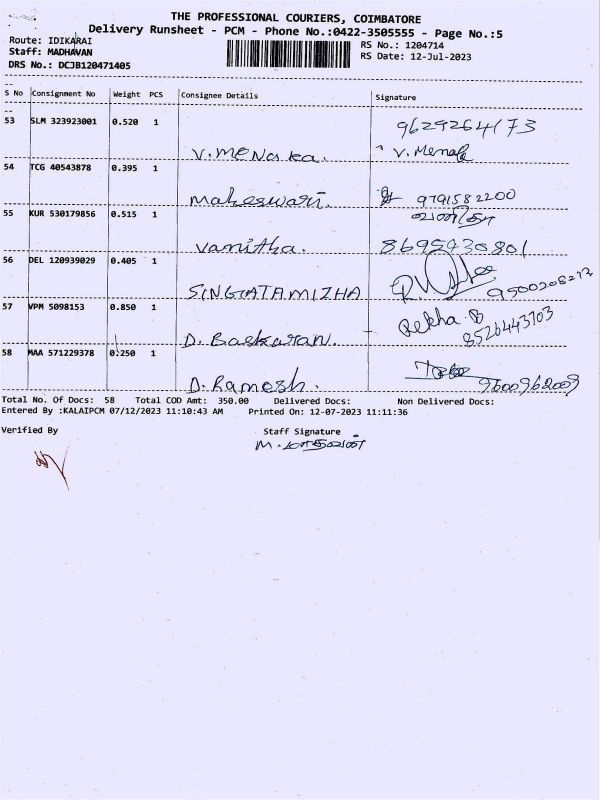 THE PROFESSIONAL COURIERS, COIMBATORE
Delivery Runsheet - PCM - Phone No.:0422-3505555 - Page No.:5
Route: IDIKARAI
RS No.: 1204714
Staff: MADHAVAN
RS Date: 12-Jul-2023
DRS No.: DCJB120471405
S No Consignment No Weight PCS Consignee Details Signature
53 SLM 323923001 0.520 1
9629264173
V. Menaka. V. Menaka
54 TCG 40543878 0.395 1
Maheswari. 9791582200
55 KUR 530179856 0.515 1 வனிதா
Vanitha. 8695430801
56 DEL 120939029 0.405 1
SINGTATAMIZHA 9500206272
57 VPM 5098153 0.850 1 Rekha. B
D. Baskaran. 8526443703
58 MAA 571229378 0.250 1
D. Ramesh. 9600962009
Total No. Of Docs: 58 Total COD Amt: 350.00 Delivered Docs: Non Delivered Docs:
Entered By :KALAIPCM 07/12/2023 11:10:43 AM Printed On: 12-07-2023 11:11:36
Verified By Staff Signature
M. மாதவன்